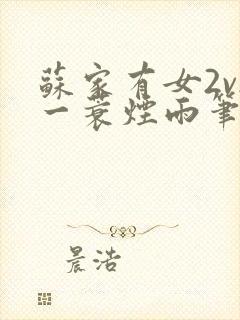 蘇家有女2v
一蓑煙雨筆
晨浩